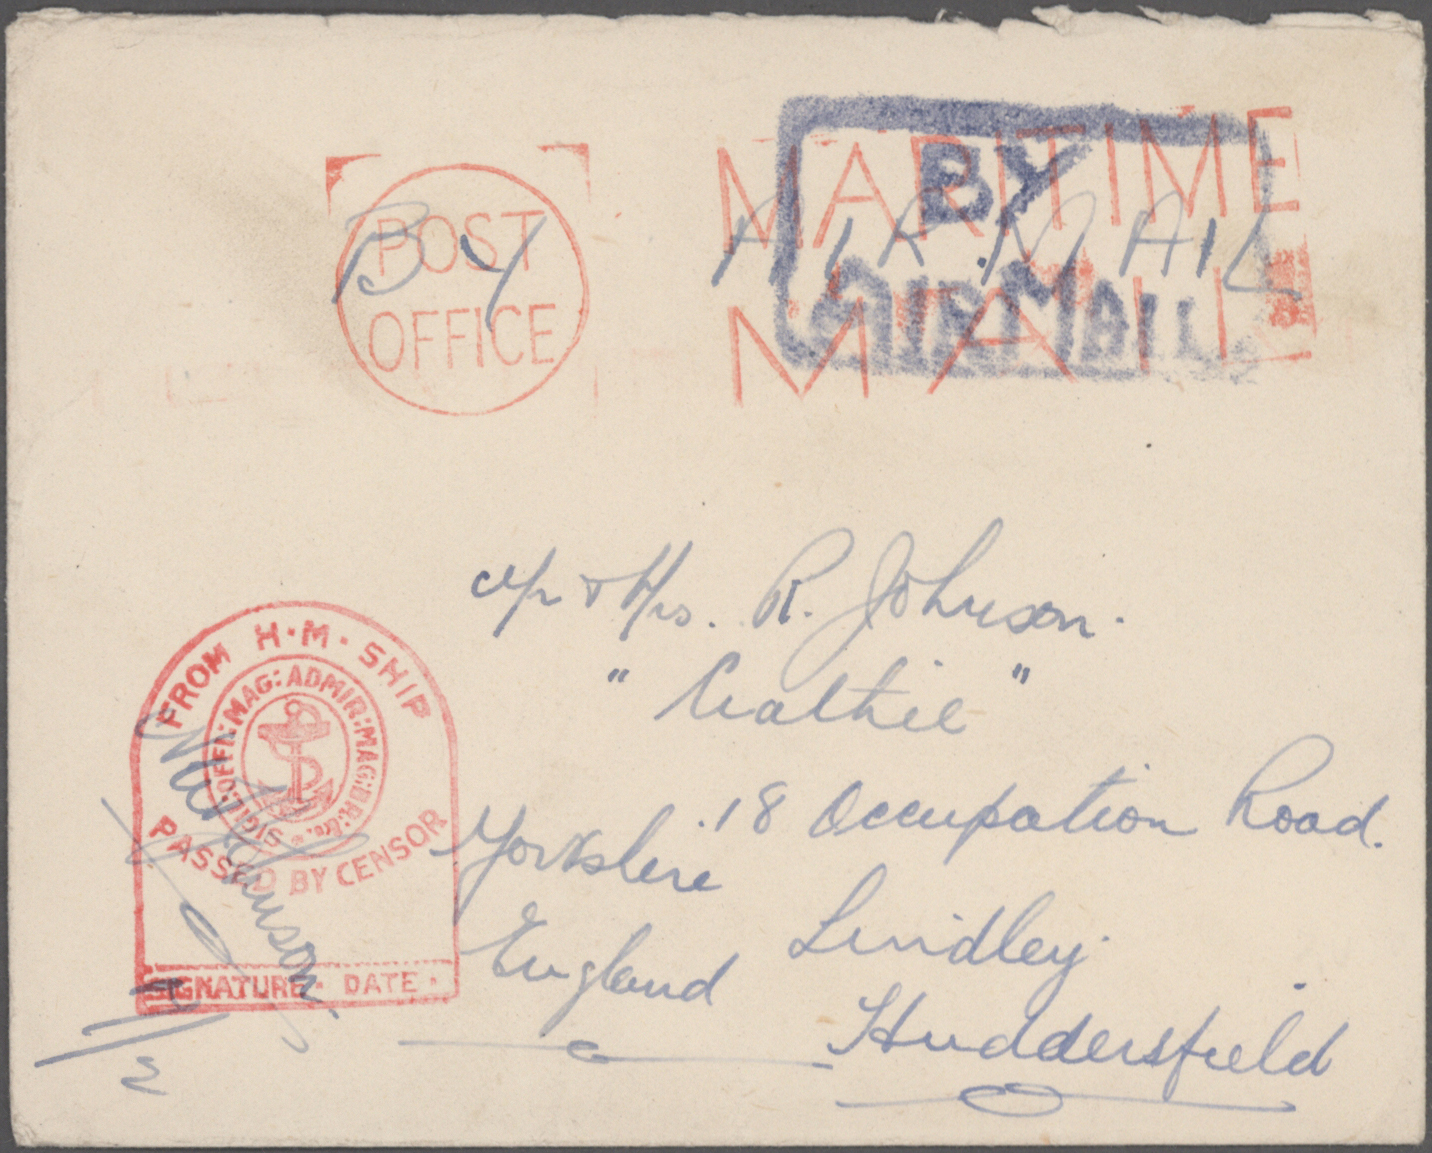 POST
OFFICE
MARITIME
MAIL
BY
AIR MAIL
By AIR MAIL
Mr & Mrs. R. Johnson.
"Crathie"
18 Occupation Road.
Lindley.
Huddersfield
Yorkshire
England
FROM H·M·SHIP
SIGIL: OFFI: MAG: ADMIR: MAG: BR: &c. *
PASSED BY CENSOR
SIGNATURE · DATE ·